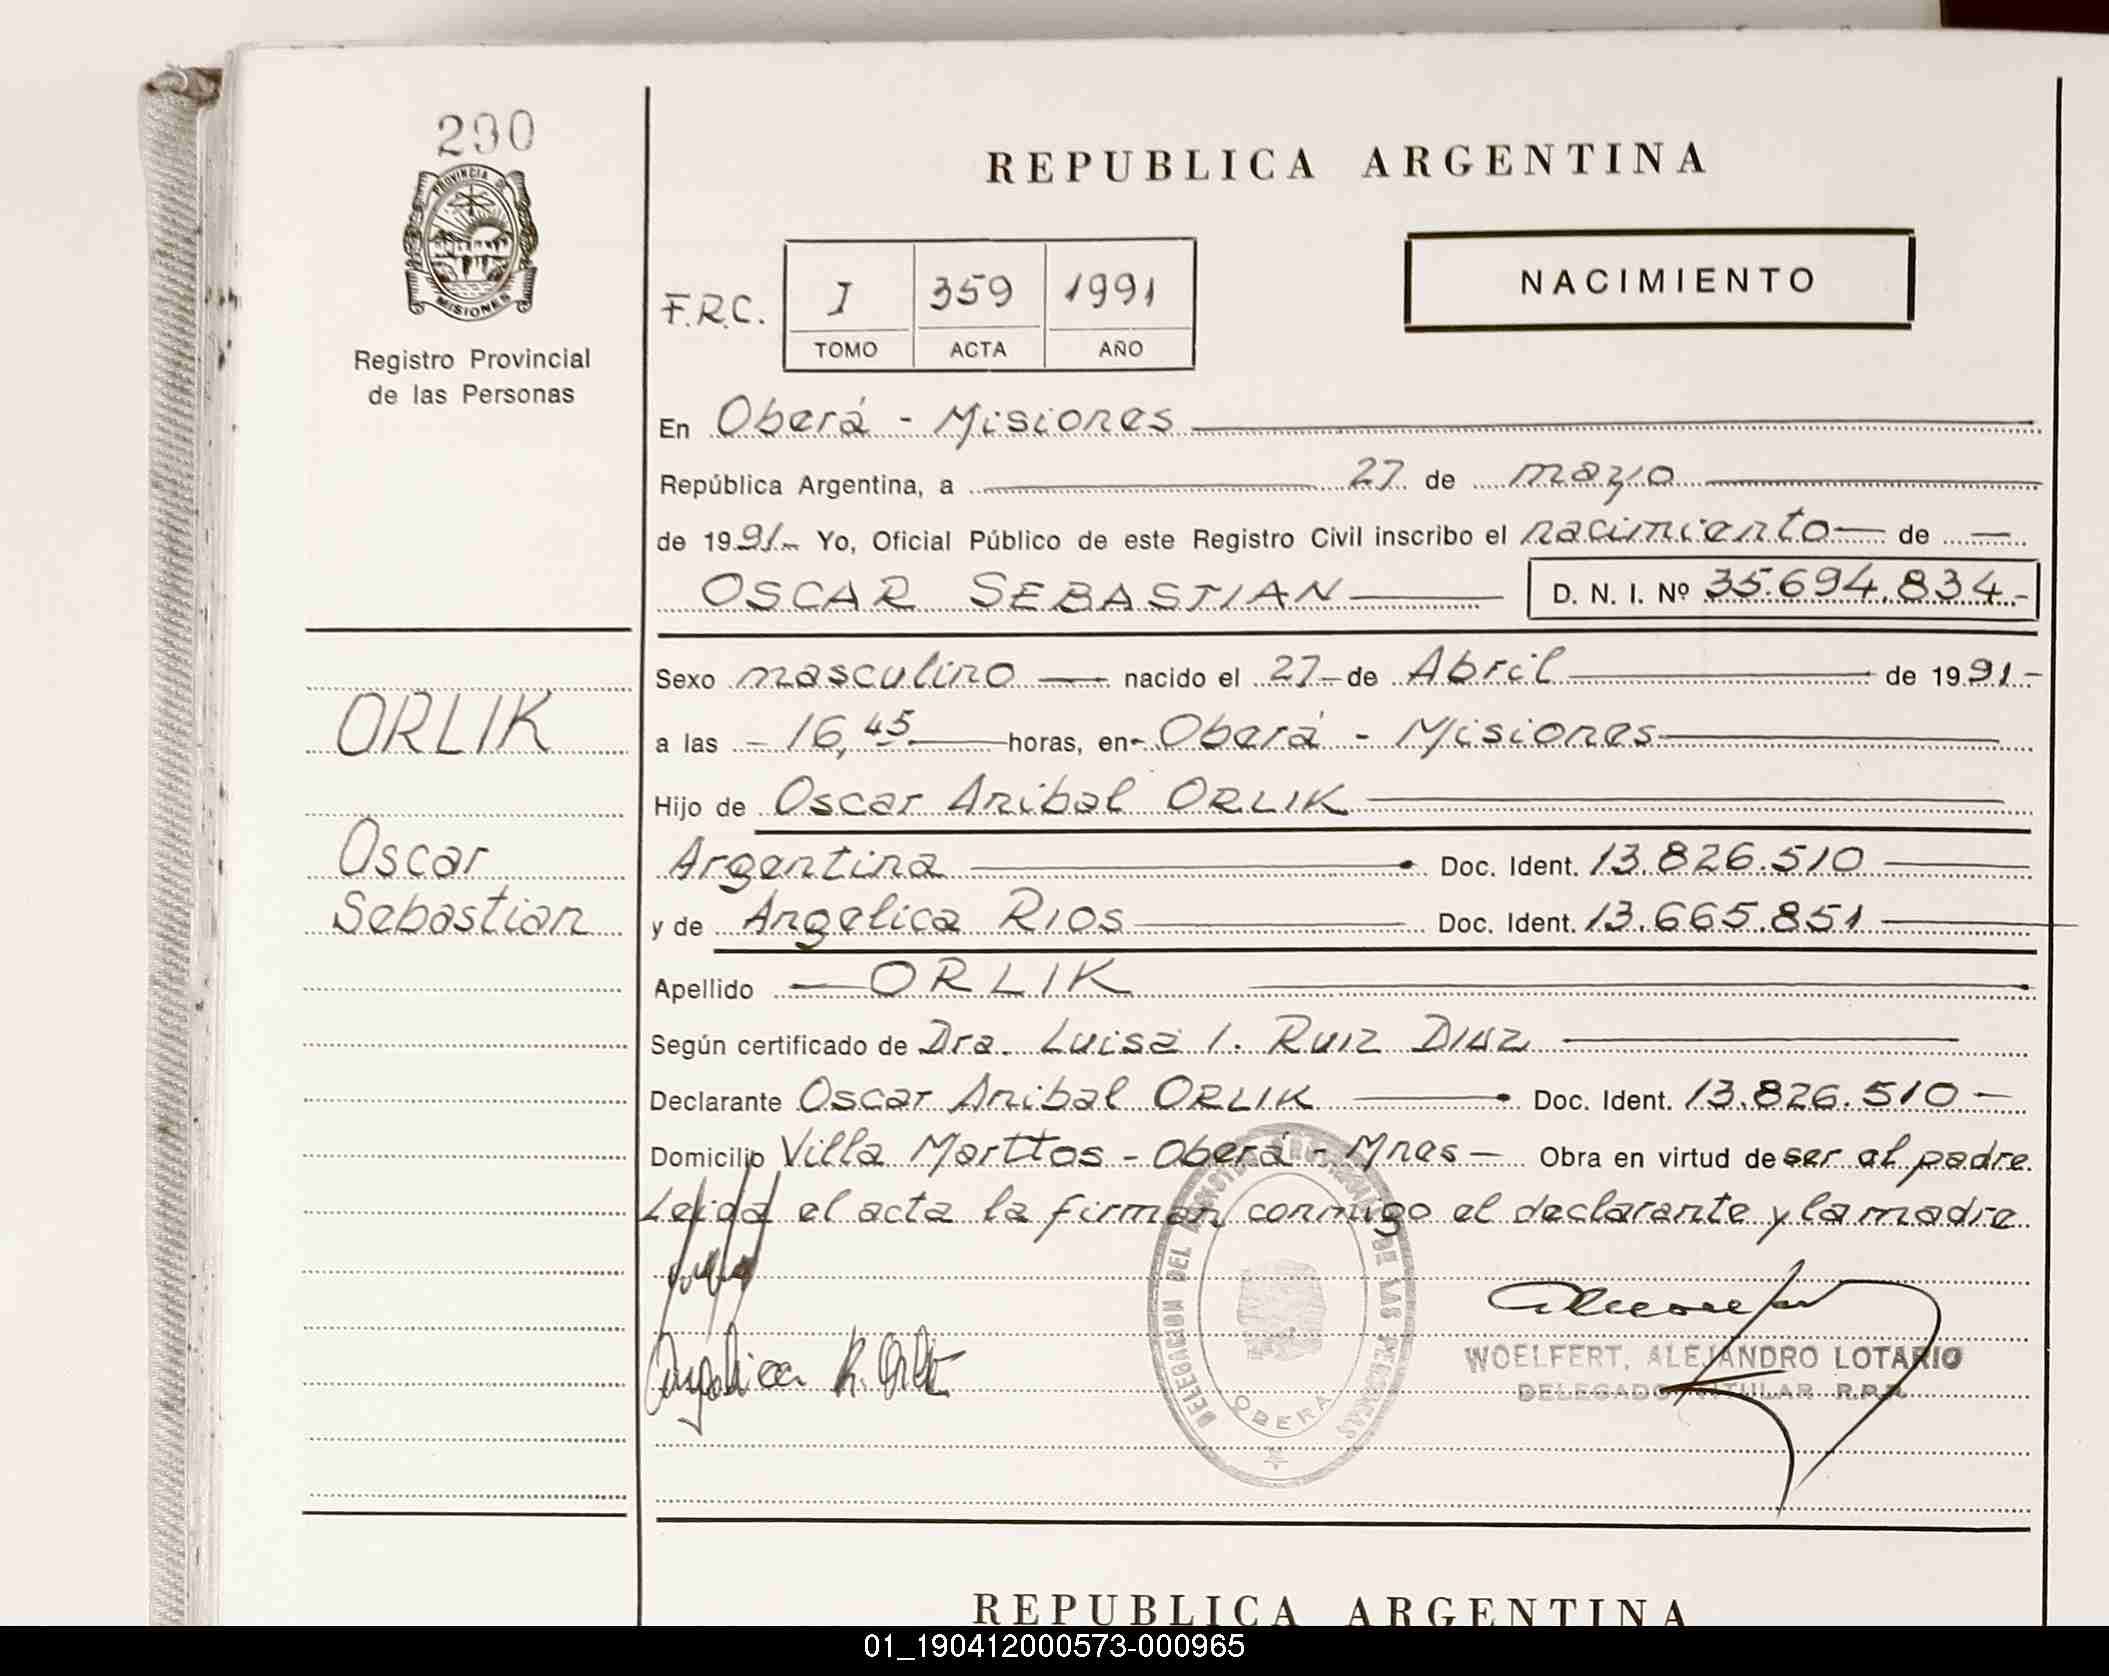 290
PROVINCIA DE
MISIONES
Registro Provincial
de las Personas
REPUBLICA ARGENTINA
F.R.C.
I 359 1991
TOMO ACTA AÑO
NACIMIENTO
En Oberá - Misiones
República Argentina, a 27 de mayo
de 1991- Yo, Oficial Público de este Registro Civil inscribo el nacimiento de
OSCAR SEBASTIAN D. N. I. Nº 35.694.834.-
Sexo masculino nacido el 27 de Abril de 1991.-
a las - 16,45 horas, en- Oberá - Misiones
Hijo de Oscar Anibal ORLIK
Argentina Doc. Ident. 13.826.510
y de Angelica RIOS Doc. Ident. 13.665.851
Apellido ORLIK
Según certificado de Dra. Luisa I. RUIZ DIAZ
Declarante Oscar Anibal ORLIK Doc. Ident. 13.826.510
Domicilio Villa Marttos - Oberá - Mnes Obra en virtud de ser el padre.
Leida el acta la firman conmigo el declarante y la madre
ORLIK
Oscar
Sebastian
Angelica R.
DELEGACION DEL DE LAS PERSONAS
OBERA
WOELFERT, ALEJANDRO LOTARIO
DELEGADO TITULAR R.P.P.
REPUBLICA ARGENTINA
01_190412000573-000965